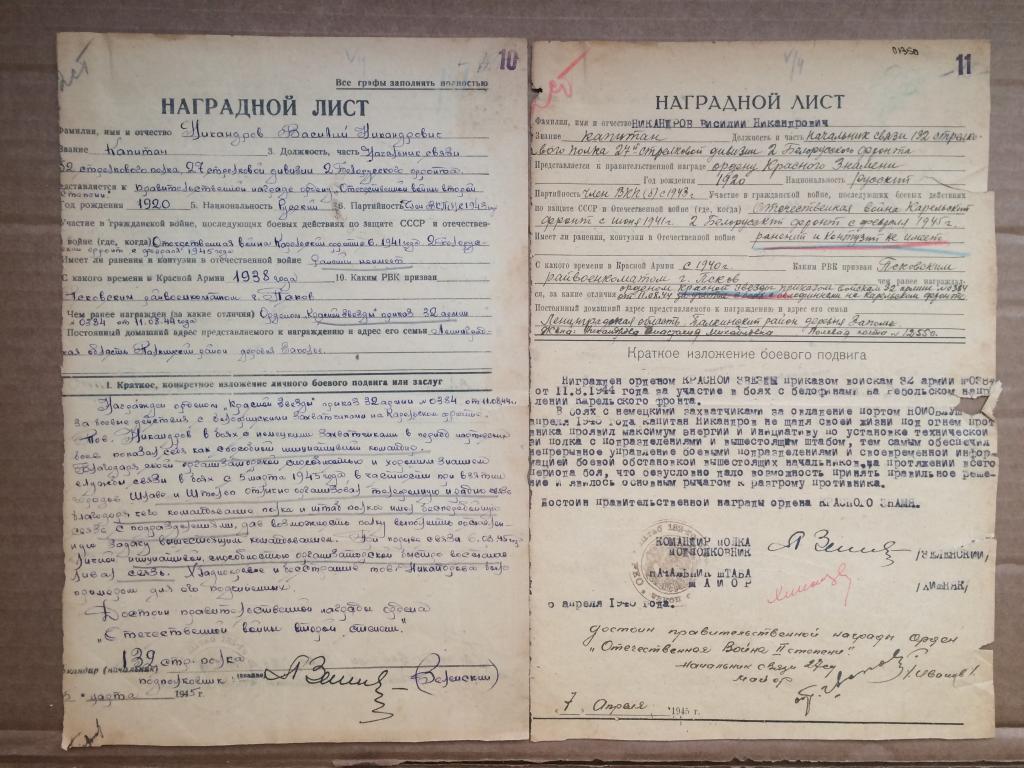 10
Все графы заполнять полностью
НАГРАДНОЙ ЛИСТ
Фамилия, имя и отчество Никандров Василий Никандрович
Звание Капитан 3. Должность, часть Начальник связи
стрелкового полка, 27 стрелковой дивизии 2 Белорусского фронта.
представляется к правительственной награде ордену Отечественной войны второй
степени
Год рождения 1920 5. Национальность Русский 6. Партийность
Участие в гражданской войне, последующих боевых действиях по защите СССР и отечествен-
войне (где, когда) Отечественная война Карельский фронт с 6.1941 года
Имеет ли ранения и контузии в отечественной войне
С какого времени в Красной Армии 1938 года 10. Каким РВК призван
Псковским райвоенкоматом г. Псков
Чем ранее награжден (за какие отличия) Орденом Красной Звезды приказ 32 армии
№0384 от 11.08.44 года
Постоянный домашний адрес представляемого к награждению и адрес его семьи Ленинград-
ская область район деревня
I. Краткое, конкретное изложение личного боевого подвига или заслуг
Награжден орденом „Красной Звезды" приказ 32 армии №0384 от 11.08.44г.
за боевые действия с белофинскими захватчиками на Карельском фронте.
Тов. Никандров в боях с немецкими захватчиками в период наступления
показал себя как способный инициативный командир.
Благодаря своей организаторской способностью и хорошим знанием
службы связи в боях с 5 марта 1945 года, в частности при взятии
городов и отлично организовал телефонную и связь
благодаря чего командование полка и штаб полка имел бесперебойную
связь с подразделениями, дав возможность полку выполнить поставлен-
ную задачу вышестоящим командованием. При порыве связи 6.03.45 года
личной инициативой, способностью организаторской быстро восстанав-
ливал связь. Хладнокровие и бесстрашие тов. Никандрова было
примером для его подчиненных.
Достоин правительственной награды ордена
„Отечественной войны второй степени".
стр. полка
Командир (начальник)
подполковник (Зеленский)
марта 1945 г.
01350
11
НАГРАДНОЙ ЛИСТ
Фамилия, имя и отчество НИКАНДРОВ Василий Никандрович
Звание капитан Должность и часть начальник связи 132 стрелко-
вого полка 27й стрелковой дивизии 2 Белорусского фронта
Представляется к правительственной награде ордену Красного Знамени
Год рождения 1920 Национальность русский
Партийность член ВКП(б) с 1943г. Участие в гражданской войне, последующих боевых действиях
по защите СССР и отечественной войне (где, когда) Отечественная война Карельский
фронт с июня 1941г. 2 Белорусский фронт с февраля 1945г.
Имеет ли ранения, контузии в Отечественной войне ранений и контузий не имеет
С какого времени в Красной Армии с 1940г. Каким РВК призван Псковским
райвоенкоматом г. Псков чем ранее награжден,
за какие отличия орденом Красной Звезды приказом войскам 32 армии №0384
от 11.08.44 за участие в боях с белофиннами на Карельском фронте
Постоянный домашний адрес представляемого к награждению и адрес его семьи
Ленинградская область Палкинский район деревня
Жена: Никандрова Анастасия Михайловна Полевая почта №13550.
Краткое изложение боевого подвига
Награжден орденом КРАСНОЙ ЗВЕЗДЫ приказом войскам 32 армии №0384
от 11.8.1944 года за участие в боях с белофинами на Ребольском напр
лении Карельского фронта.
В боях с немецкими захватчиками за овладение портом
апреля 1945 года капитан Никандров не щадя своей жизни под огнем прот
проявил максимум энергии и инициативу по установке технической
зи полка с подразделениями и вышестоящим штабом, тем самым обеспечил
непрерывное управление боевыми подразделениями и своевременной инфор
мацией боевой обстановки вышестоящих начальников, на протяжении всего
периода боя, что безусловно дало возможность принять правильное реше-
ние и явилось основным рычагом к разгрому противника.
Достоин правительственной награды ордена КРАСНОГО ЗНАМЯ.
КОМАНДИР ПОЛКА
ПОДПОЛКОВНИК /ЗЕЛЕНСКИЙ/
НАЧАЛЬНИК ШТАБА
МАЙОР
апреля 1945 года.
достоин правительственной награды Орден
„Отечественная Война II степени"
Начальник связи 27 сд
майор
7 Апреля 1945 г.